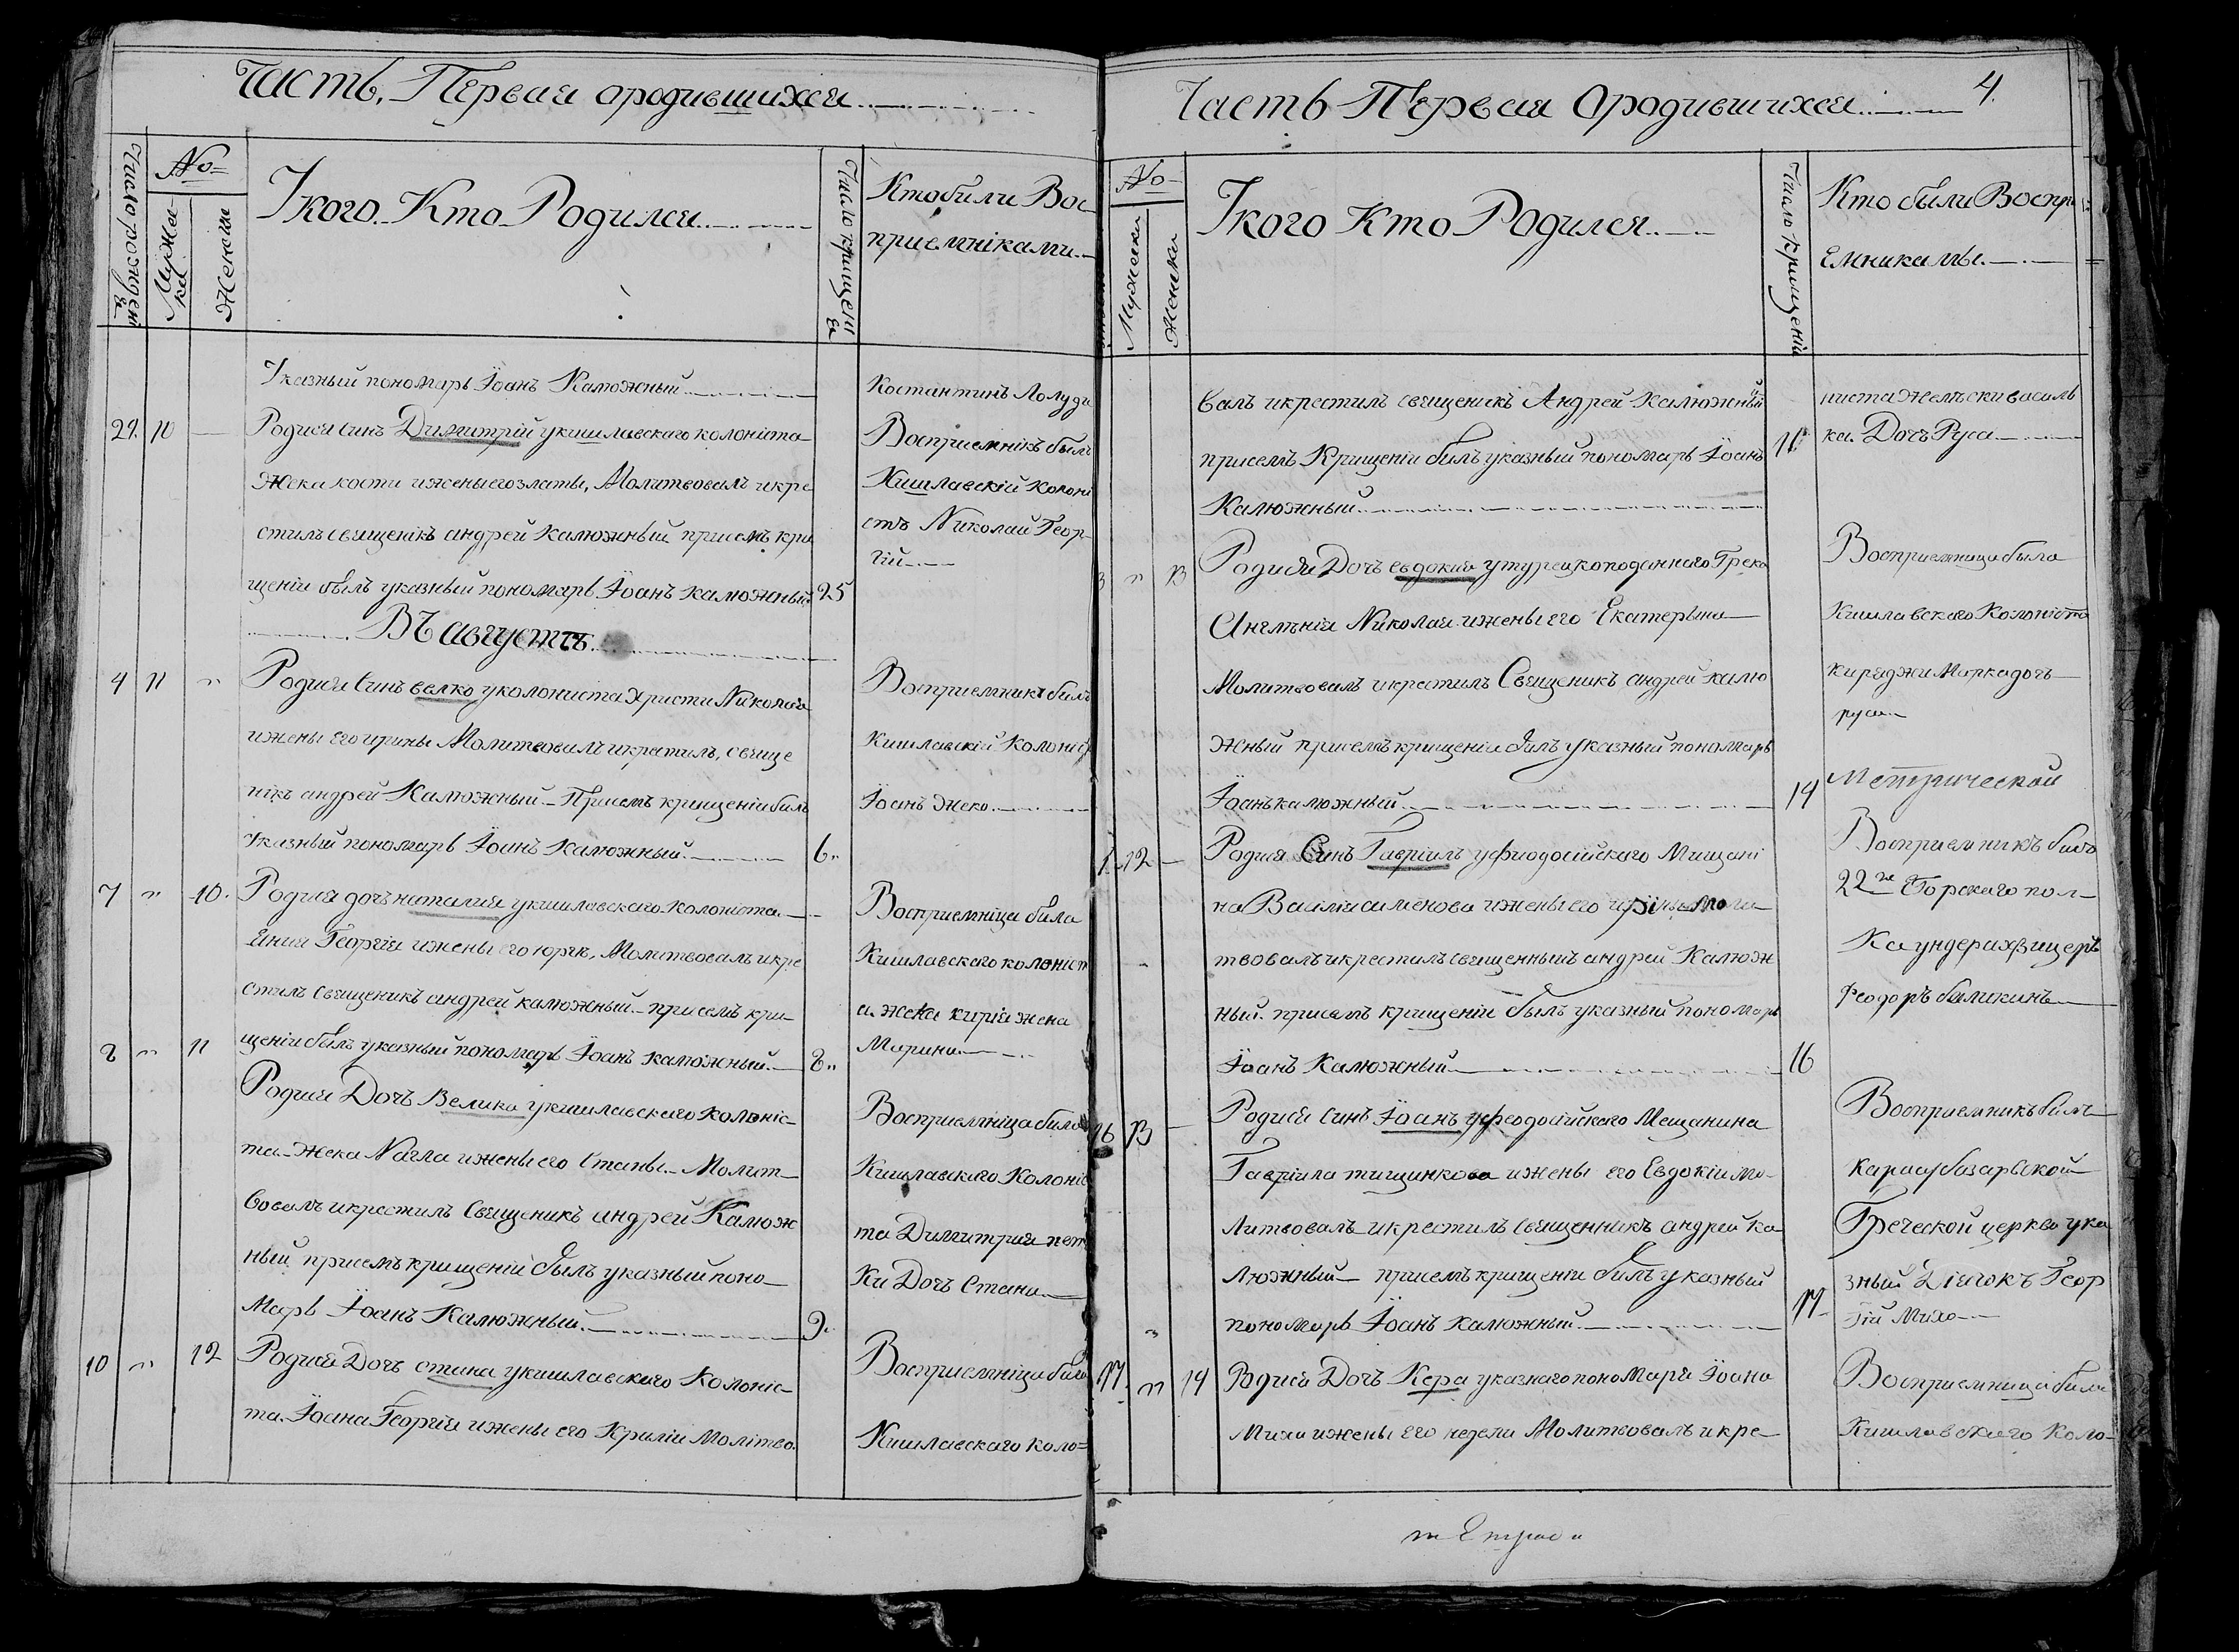 Часть, Первая ородившихся
Число рождені
я
No
Мужес
ка
Женска
Укого Кто Родился
Число крищени
я
Кто били Вос
приемніками
Указный пономарь Іоанъ Калюжный
Костантинъ
21. 10
Родися Синъ Димитрий укишлавскаго колониста
Жека кости ижены его златы, Молитвовалъ икре
стилъ священікъ андрей Калюжный присемъ кри
щеніи былъ указный пономарь Іоанъ калюжный 25
Восприемнікъ былъ
Кишлавскій Колони
стъ Николай Геор
гій
Въ августъ
4 11 "
Родися Синъ велко уколониста Христи Николая
ижены его ирины Молитвовалъ икрестилъ, свяще
нікъ андрей Калюжный Присемъ крищеніи билъ
Указный пономарь Іоанъ Калюжный 6
Восприемникъ билъ
Кишлавскій Колоніс
Іоанъ Жеко
7 " 10.
Родися дочъ наталия укишлавскаго колониста
Яния Георгія ижены его юрги, Молитвовалъ икре
стилъ священикъ андрей калюжный присемъ кри
щеніи былъ указный пономарь Іоанъ калюжный 8
Восприемніца била
Кишлавскаго колоніст
а жека кирія жена
Марина
8 " 11
Родися Дочъ Велика укишлавскаго колоніс
та Жека Нагла ижены его Станы Молит
вовалъ икрестилъ Священикъ андрей Калюж
ный присемъ крищеніи былъ указный поно
Марь Іоанъ Калюжный 9.
Восприемніца била
Кишлавскаго Колоніс
та Димитрия пет
ки Дочъ Стана
10 " 12
Родися Дочъ стана укишлавскаго Колоніс
та Іоана Георгія ижены его Криліи Молітво
Восприемніца била
Кишлавскаго коло=
Часть Первая Ородившихся
4.
No
Мужески
Женска
Укого Кто Родился
Число Крищеній
Кто были Воспри
Емникамы
валъ икрестилъ священикъ Андрей Калюжный
присемъ Крищеніи билъ указный пономарь Іоанъ 11
Калюжный
ниста василь
ка Дочъ Руса
" 13
Родися Дочъ евдокия утурецкоподаннаго Грека
Николая ижены его Екатерына
Молитвовалъ икрестилъ Священикъ андрей калю
жный присемъ крищеніи билъ указный пономарь
Іоанъ калюжный 14
Восприемница была
Кишлавскаго Колоніста
кираджи Марка дочъ
руса
Метрической
12
Родися Синъ Гавріилъ уфиодосійскаго Мищані
на Василія саменова ижены его ирины моли
твовалъ икрестилъ священныиъ андрей Калюж
ный. присемъ крищеніи былъ указный пономарь
Іоанъ Калюжный 16
Восприемникъ билъ
22го Егорскаго пол
ка ундерахвицеръ
Феодоръ баликинъ
16 13
Родися Синъ Іоанъ уфеодосійскаго Мещанина
Гавріила тищинкова ижены его Евдокіи мо
литвовалъ икрестилъ священникъ андрей ка
люжный присемъ крищени билъ указный
пономарь Іоанъ калюжный 17
Восприемникъ билъ
карасубазарьской
Греческой церкви ука
зный Діячокъ Геор
гій Михо
17 " 14
Родися Дочъ Кера указнаго пономаря Іоана
Михи ижены его недели Молитвовалъ икре
Восприемница била
Кишлавскаго Коло